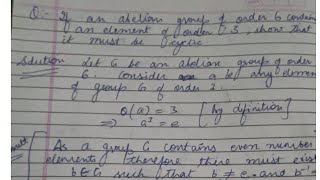 Q:- If an abelian group of order 6 contain
an element of order 3, show that
it must be cyclic
Solution Let G be an abelian group of order
6. Consider a be any element
of group G of order 2.
O(a) = 3 [by difinition]
⇒ a³ = e
As a group G contains even number
elements therefore there must exist
b∈G such that b ≠ e and b⁻¹